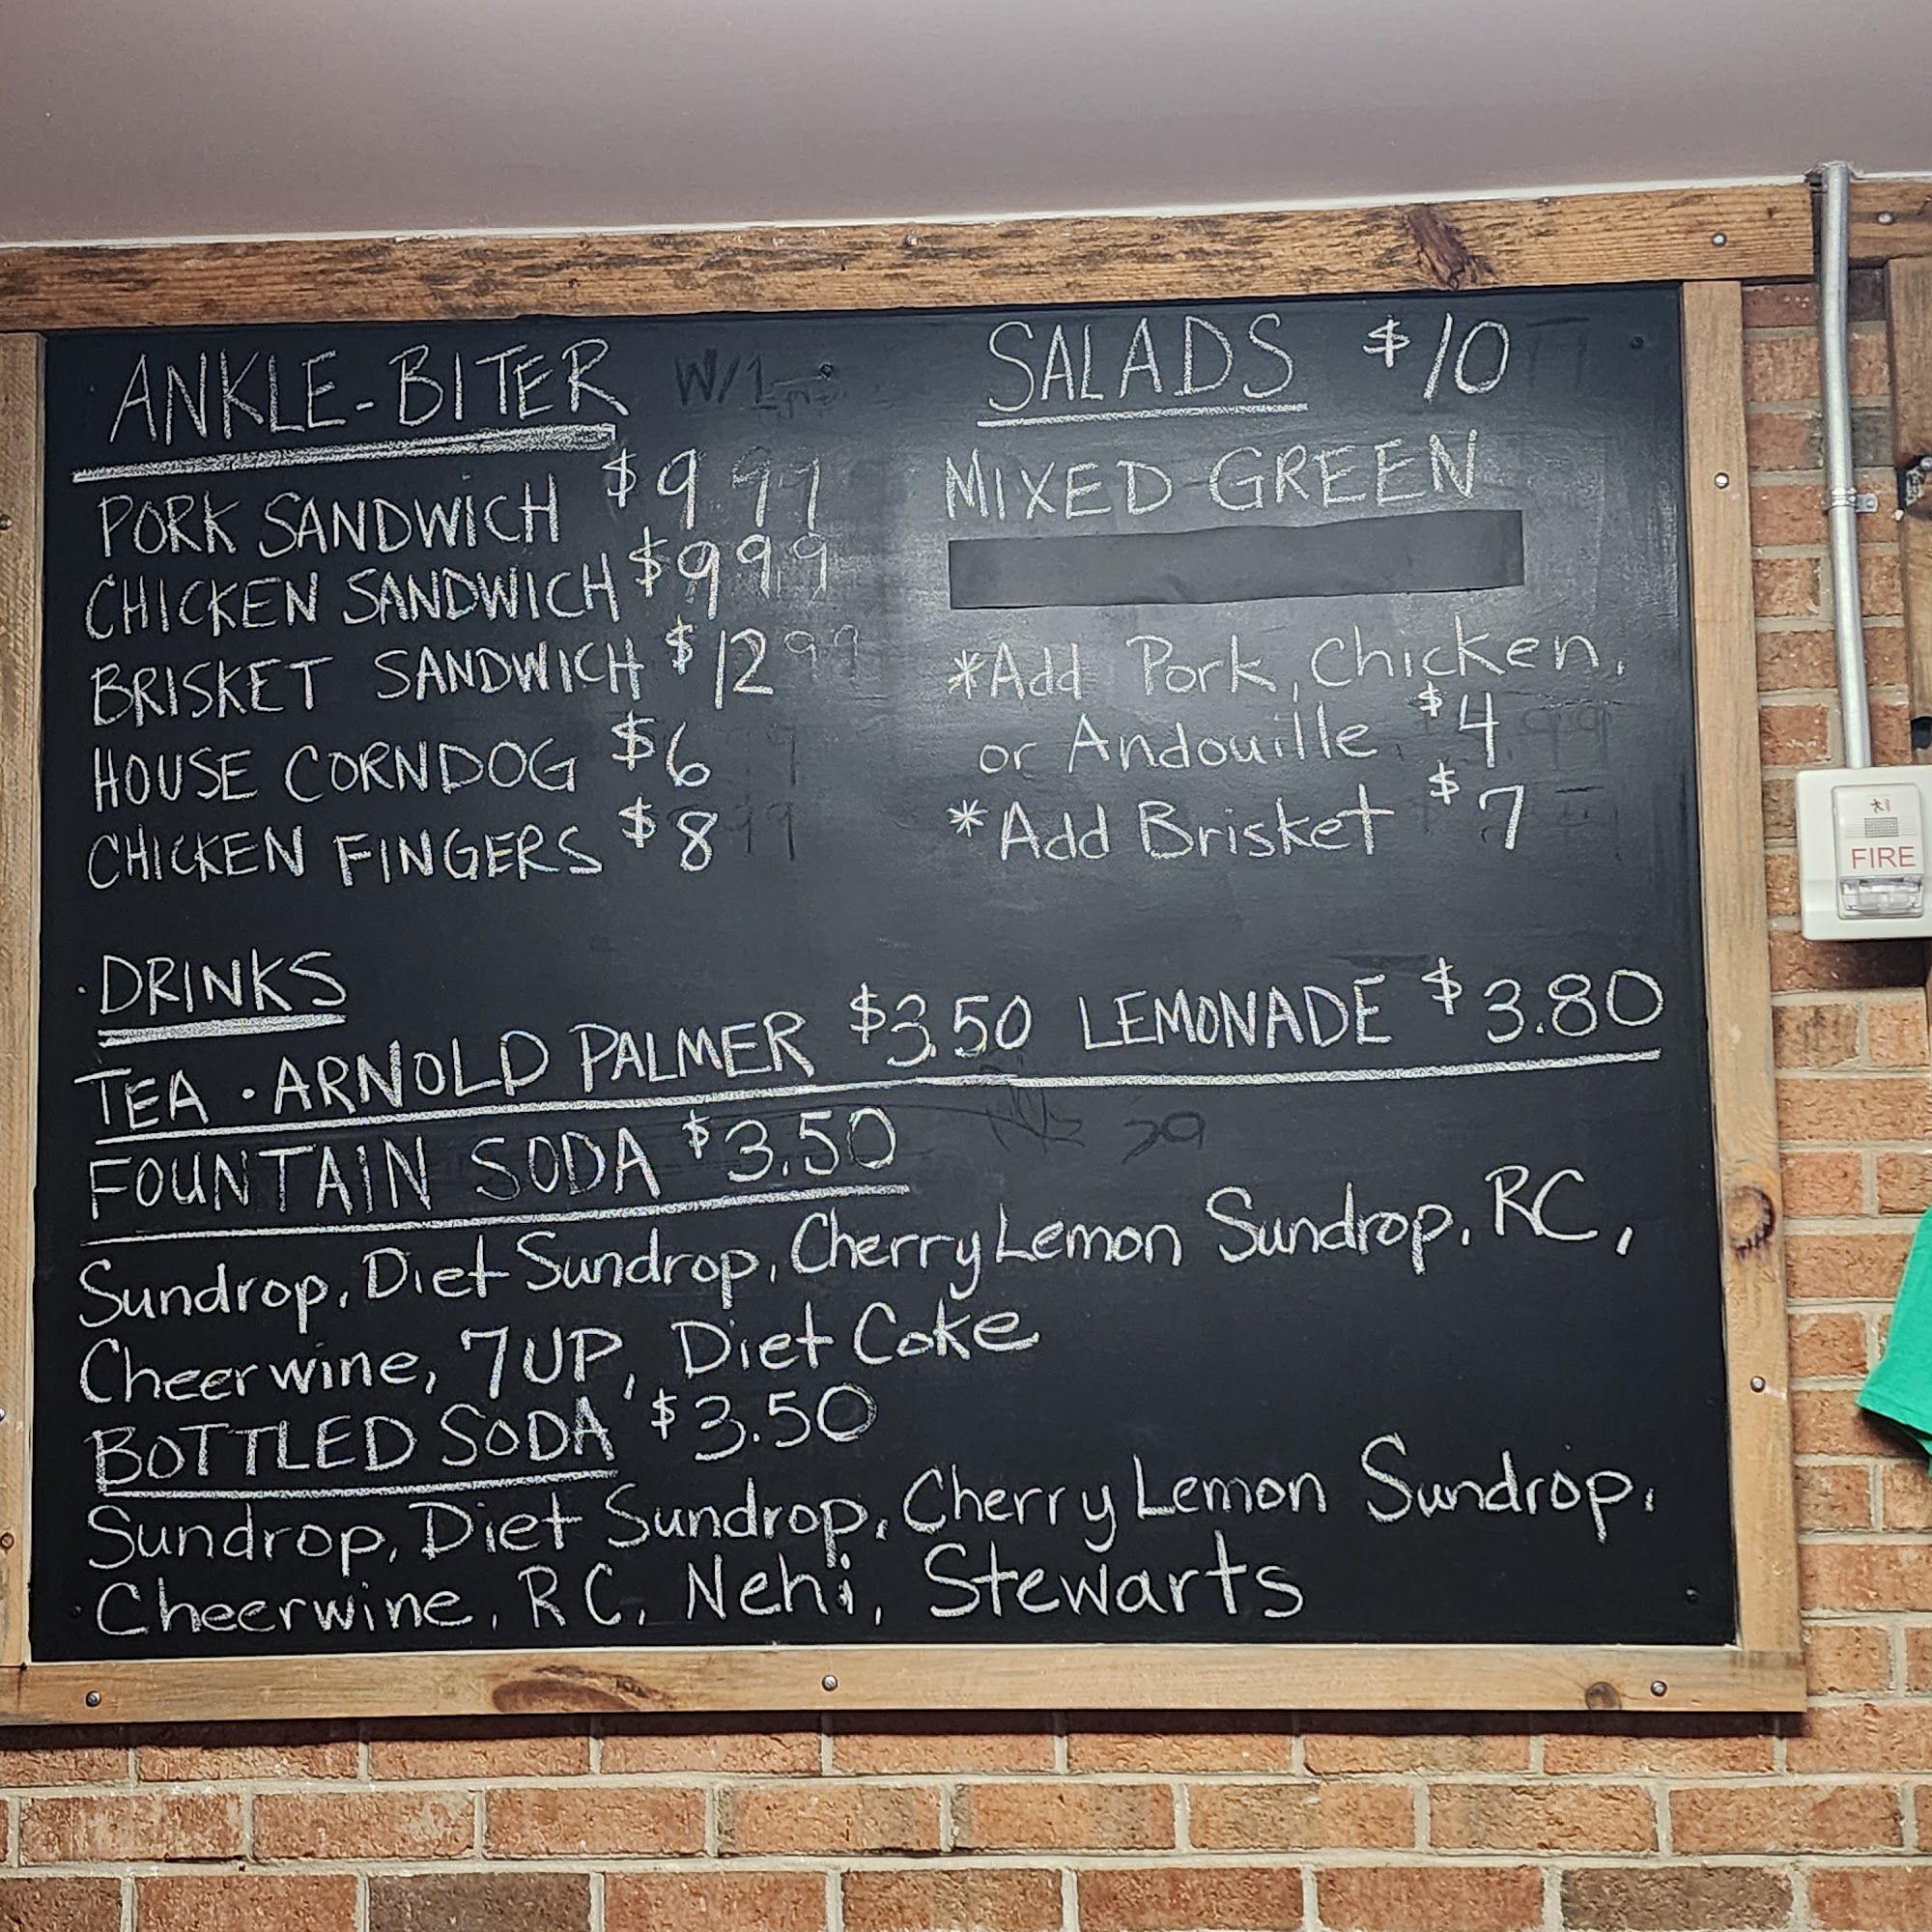 ANKLE-BITER W/1
PORK SANDWICH $9 99
CHICKEN SANDWICH $9 99
BRISKET SANDWICH $12 99
HOUSE CORNDOG $6
CHICKEN FINGERS $8
SALADS $10
MIXED GREEN
*Add Pork, Chicken,
or Andouille $4
*Add Brisket $7
DRINKS
TEA · ARNOLD PALMER $3.50 LEMONADE $3.80
FOUNTAIN SODA $3.50
Sundrop, Diet Sundrop, Cherry Lemon Sundrop, RC,
Cheerwine, 7UP, Diet Coke
BOTTLED SODA $3.50
Sundrop, Diet Sundrop, Cherry Lemon Sundrop,
Cheerwine, RC, Nehi, Stewarts
FIRE